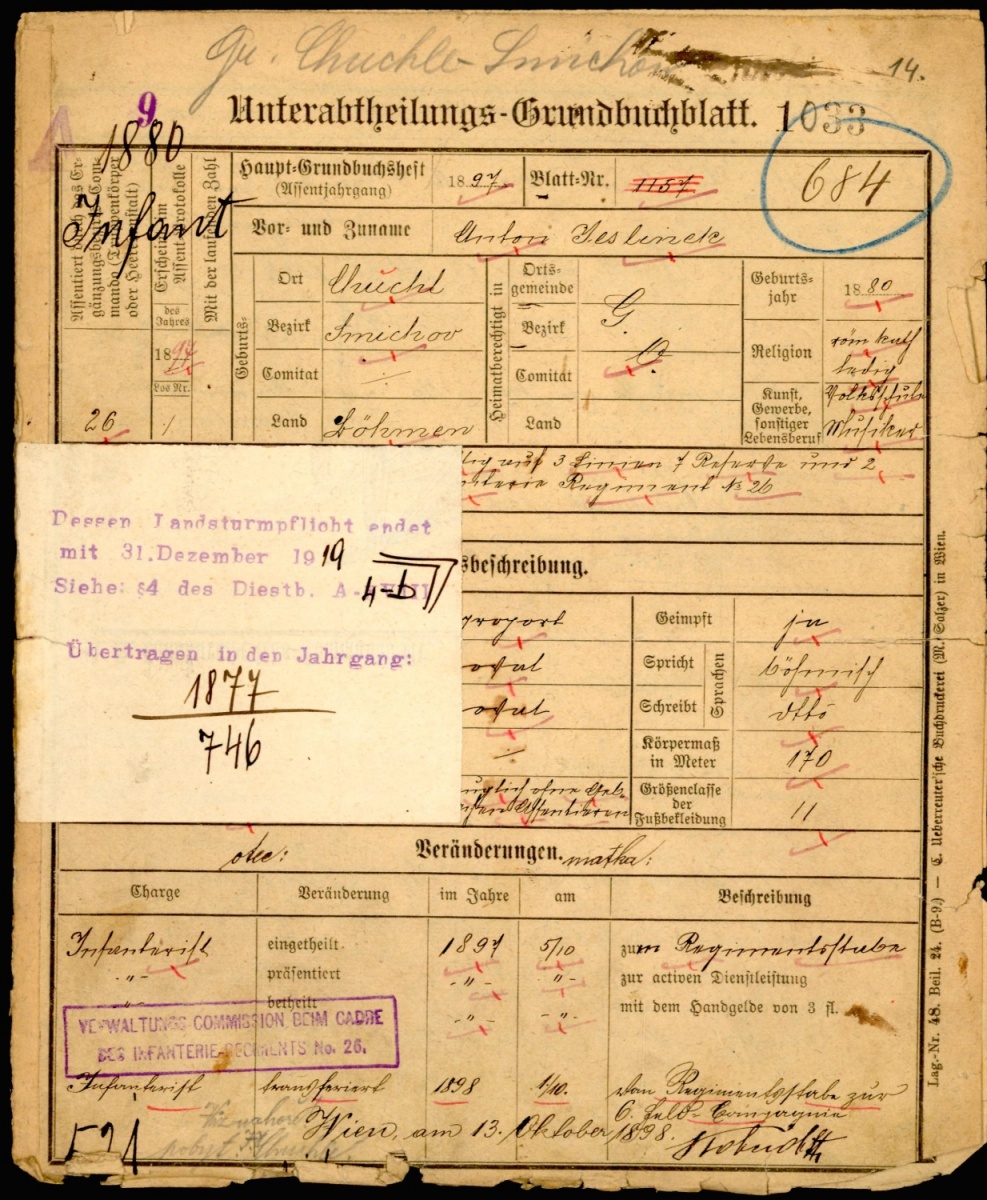 Gr. Chuchle-Smichov
14.
9
Unterabtheilungs-Grundbuchblatt. 1033
1880
Infant
684
Haupt-Grundbuchsheft
(Assentjahrgang)
1897.
Blatt-Nr. 1157
Vor- und Zuname Anton Jeslinek
Mit der laufenden Zahl
Erscheint im Assentprotokolle
des Jahres
1897
Los Nr.
26 1
Geburts-
Ort Chuchl
Bezirk Smichov
Comitat ÷
Land Böhmen
Heimatberechtigt in
Ortsgemeinde
Bezirk
Comitat
Land
G.
O.
Geburtsjahr 1880
Religion röm kath
ledig
Kunst, Gewerbe, sonstiger Lebensberuf
Volksschule
Musiker
auf 3 Linien 7 Reserve und 2
Regiment № 26
sbeschreibung.
Dessen Landsturmpflicht endet
mit 31.Dezember 1919
Siehe: §4 des Diestb. A-
Übertragen in den Jahrgang:
1877
746
proport
oval
oval
÷
Geimpft ja
Sprachen
Spricht böhmisch
Schreibt dtto
Körpermaß in Meter 170
Größenclasse der Fußbekleidung 11
otec: Veränderungen. matka:
Charge Veränderung im Jahre am Beschreibung
Infanterist eingetheilt 1897 5/10 zum Regimentsstabe
-"- präsentiert -"- -"- zur activen Dienstleistung
-"- betheilt -"- -"- mit dem Handgelde von 3 fl.
VERWALTUNGS COMMISSION BEIM CADRE
DES INFANTERIE-REGIMENTS No. 26.
Infanterist transferiert 1898 1/10. vom Regimentsstabe zur
6. Feld-Compagnie
Wien, am 13. Oktober 1898.
521
Lag.-Nr. 48. Beil. 24. (B-9.) — C. Ueberreuter'sche Buchdruckerei (M. Salzer) in Wien.